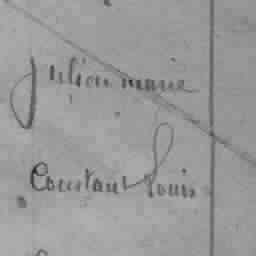 Julien marie
Constant Louis